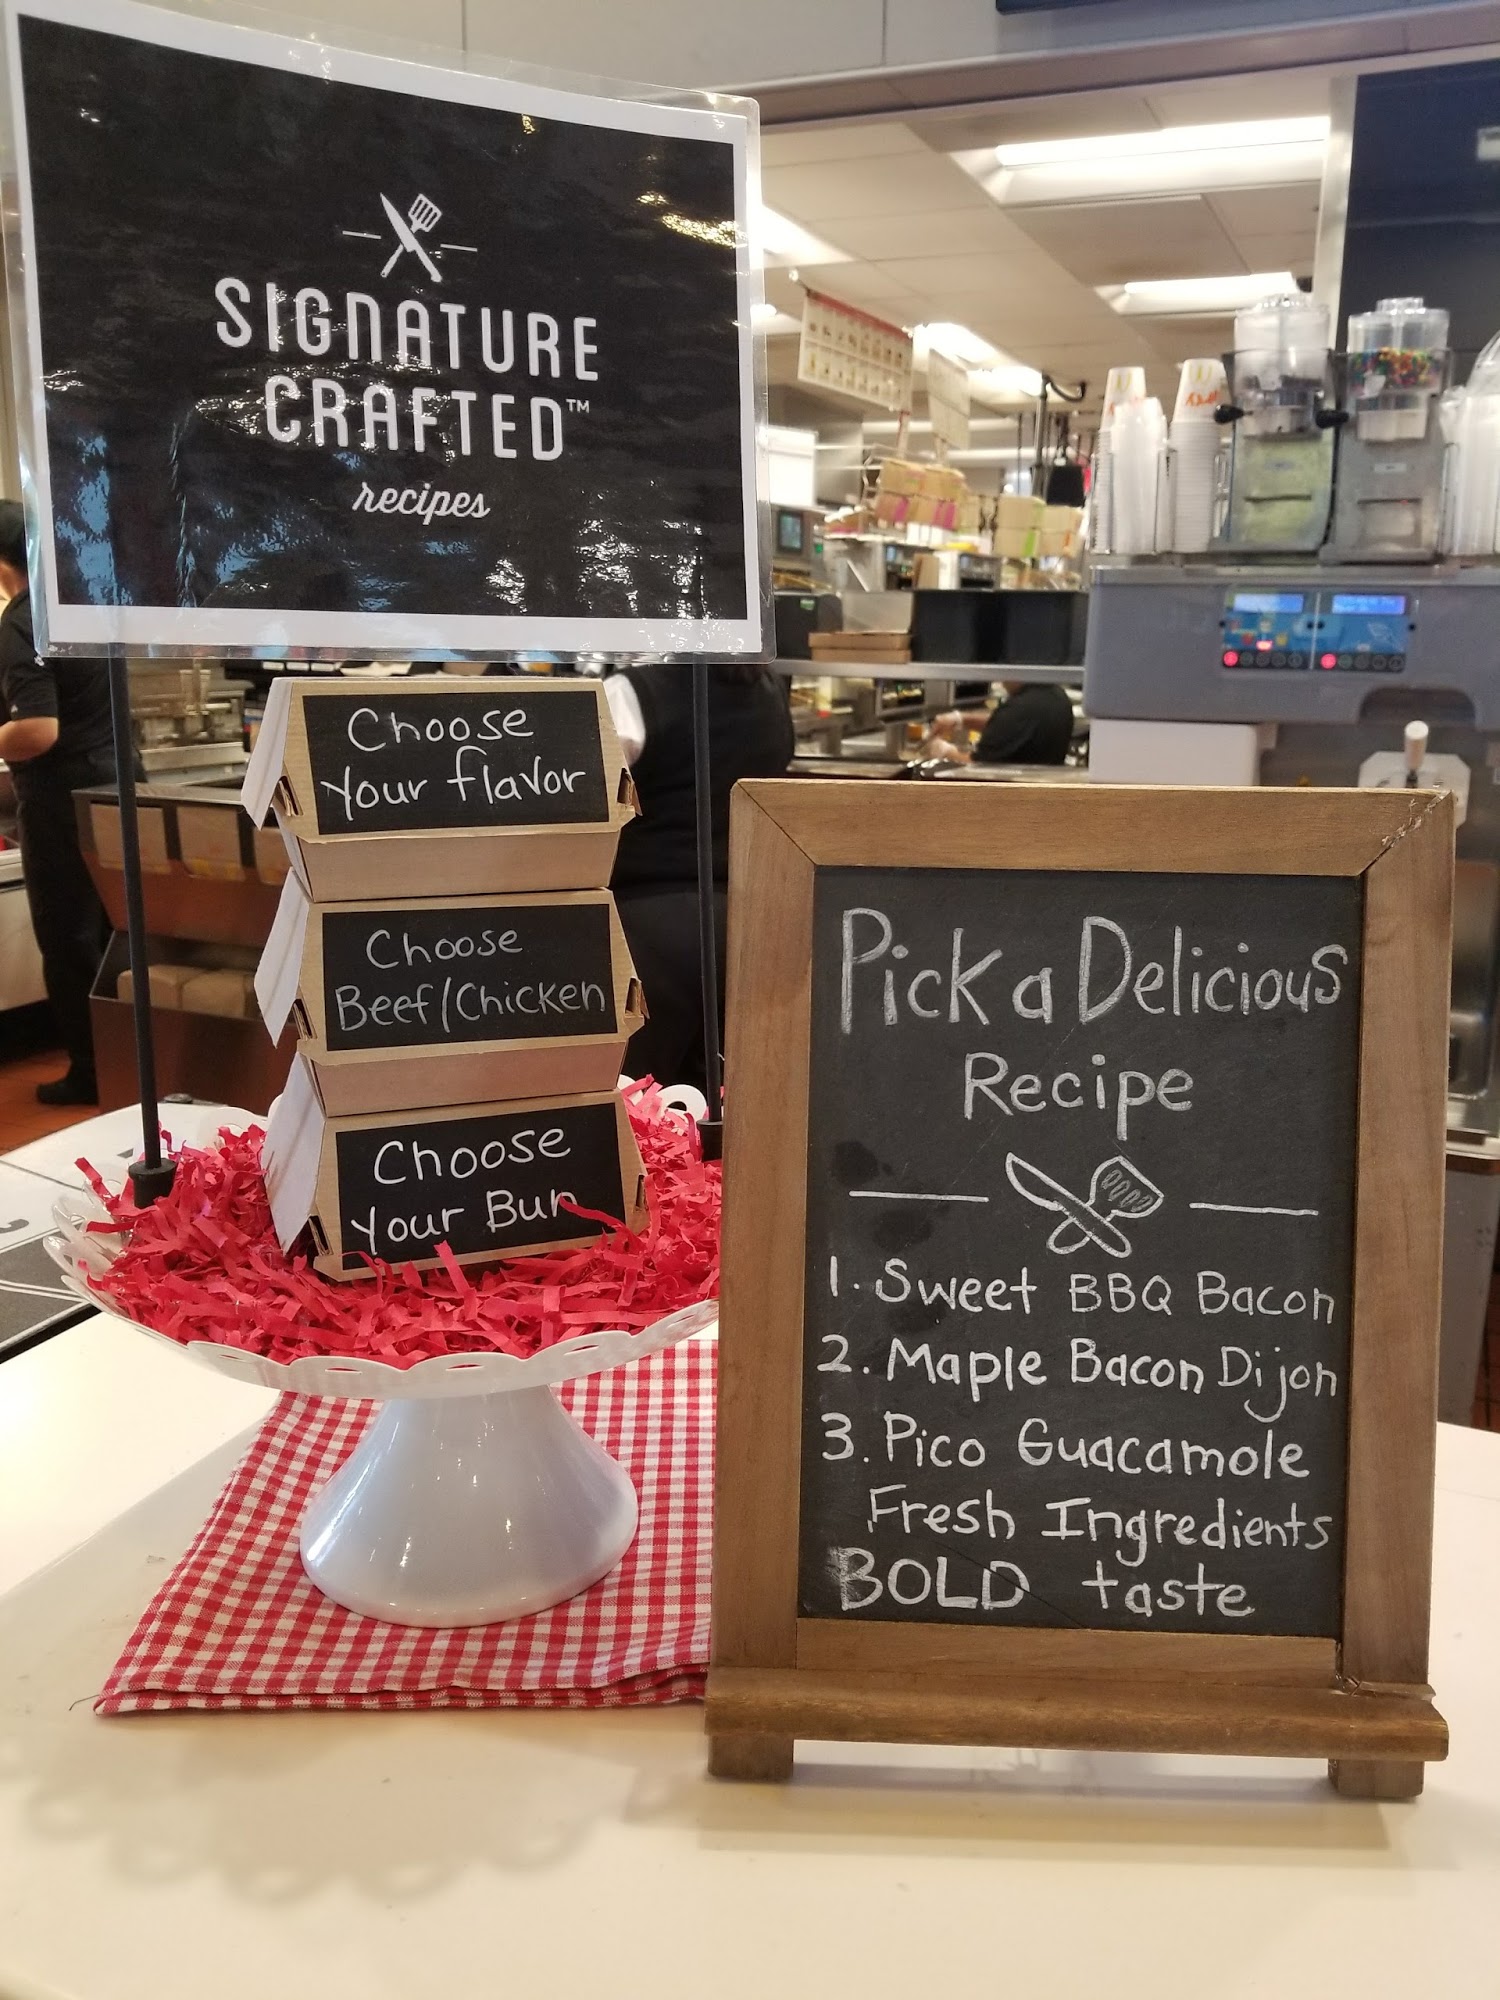 SIGNATURE
CRAFTED™
recipes
Choose
Your flavor
Choose
Beef/Chicken
Choose
Your Bun
Pick a Delicious
Recipe
1. Sweet BBQ Bacon
2. Maple Bacon Dijon
3. Pico Guacamole
Fresh Ingredients
BOLD taste